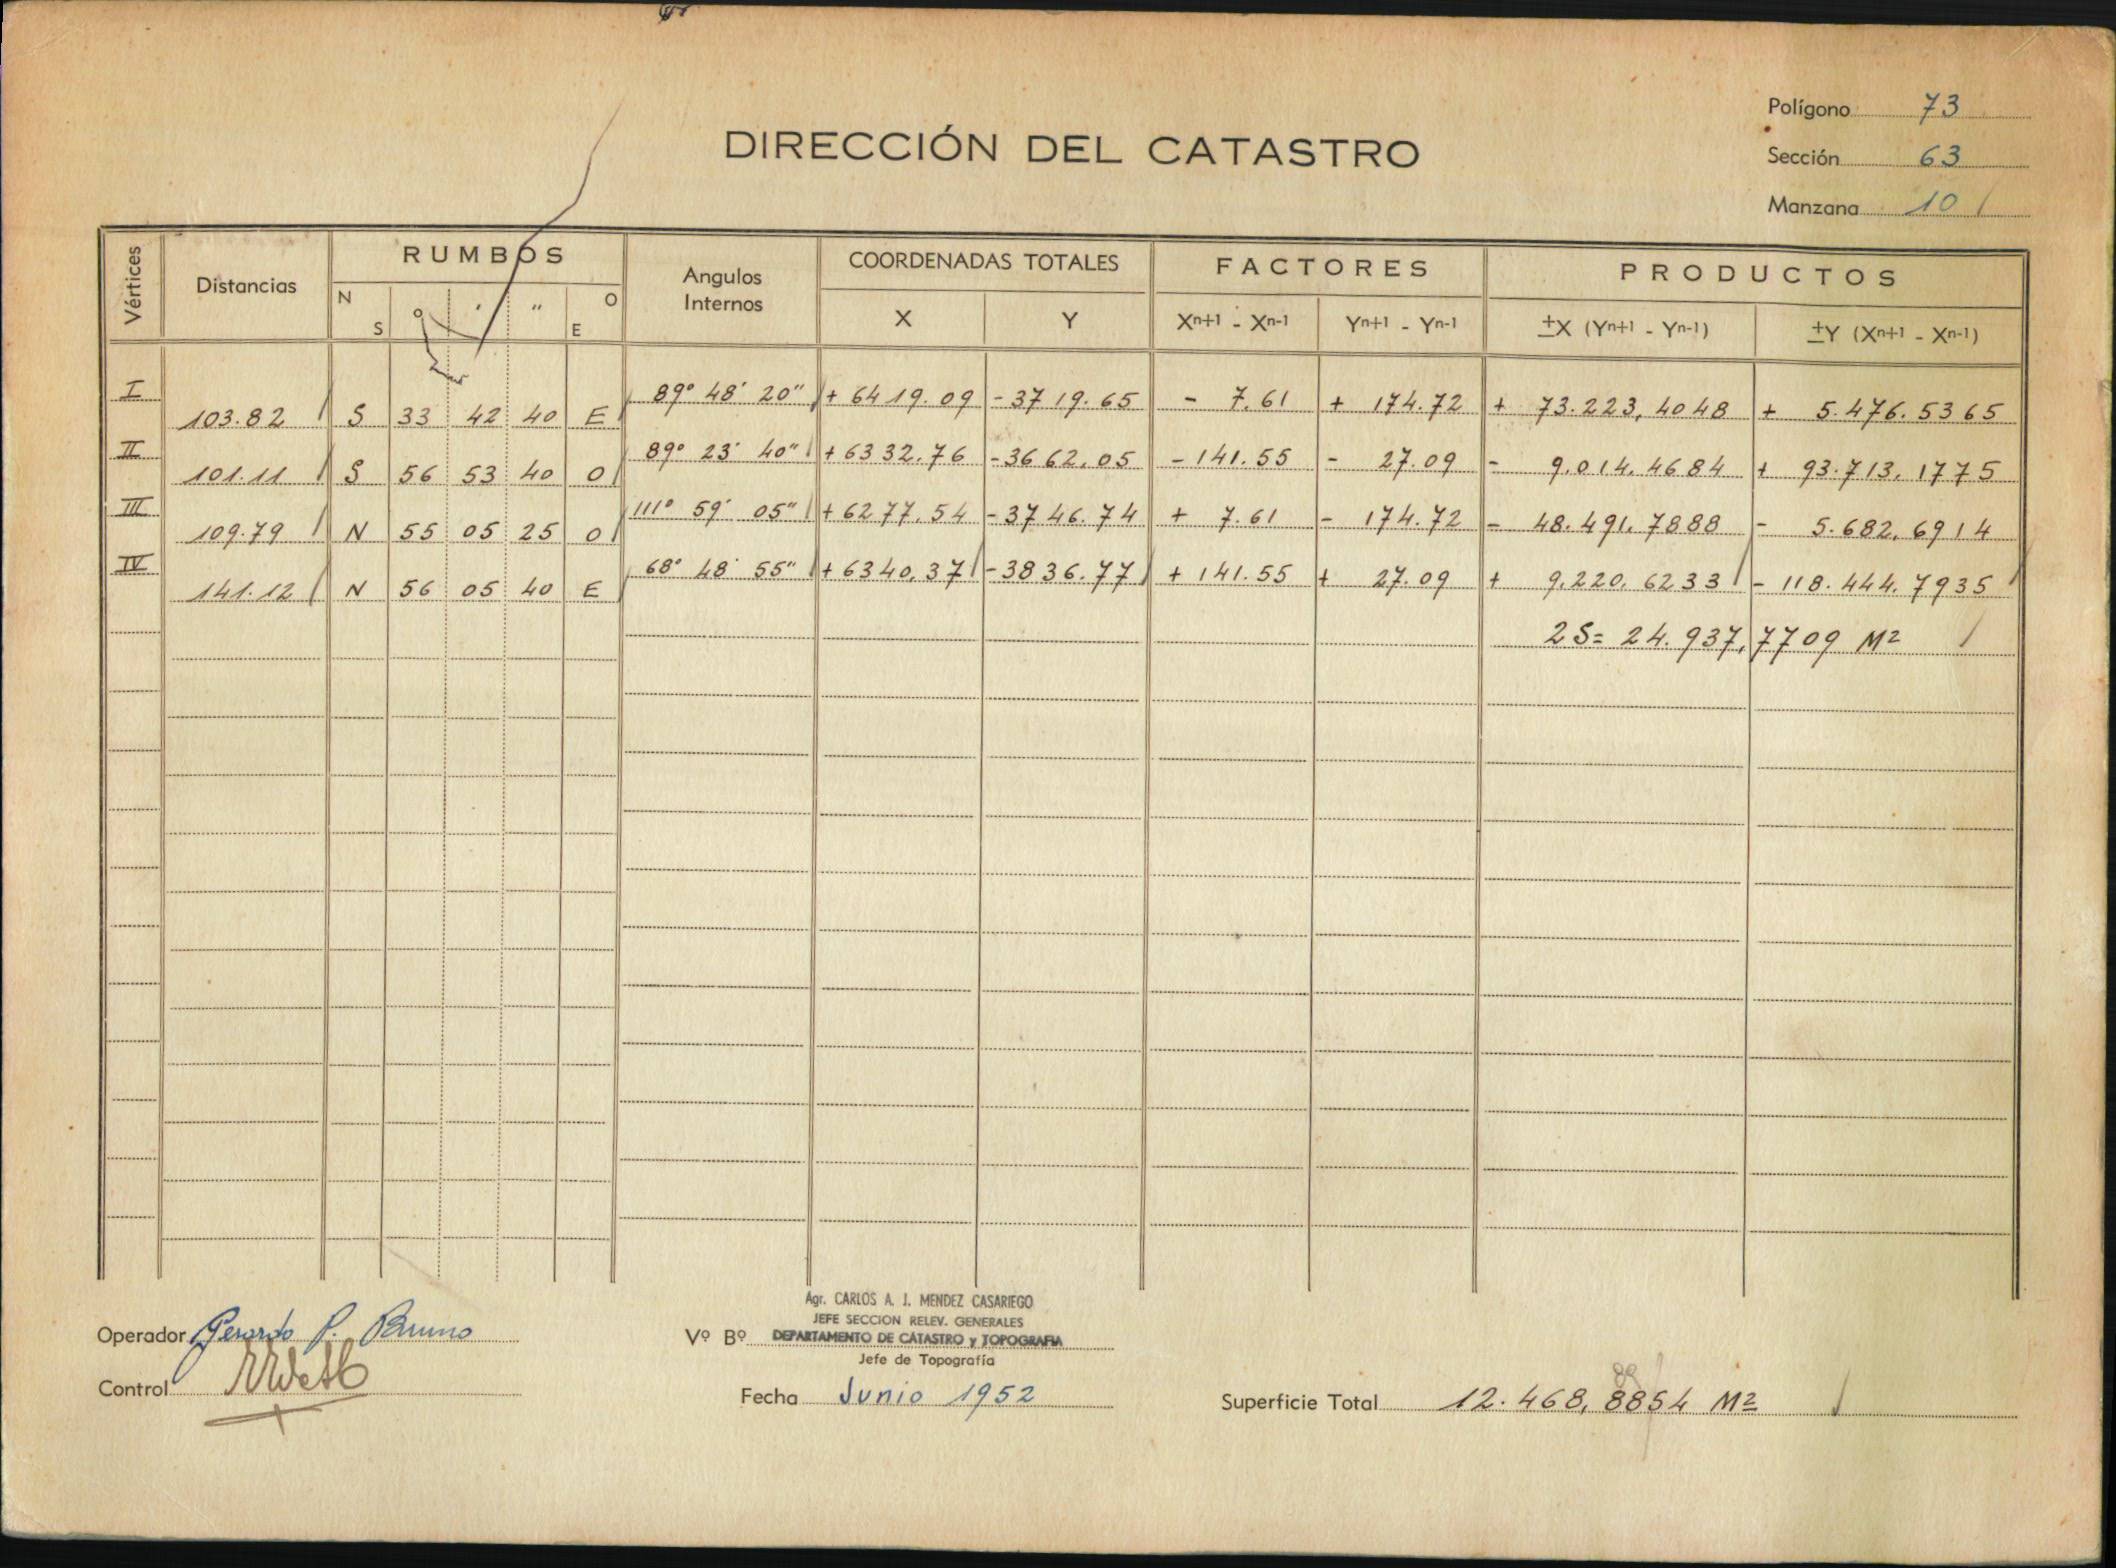 DIRECCIÓN DEL CATASTRO
Polígono 73
Sección 63
Manzana 10
Vértices Distancias RUMBOS Angulos Internos COORDENADAS TOTALES FACTORES PRODUCTOS
N S ° ' " O E X Y Xn+1 - Xn-1 Yn+1 - Yn-1 ±X (Yn+1 - Yn-1) ±Y (Xn+1 - Xn-1)
I 89° 48' 20" + 6419.09 - 3719.65 - 7.61 + 174.72 + 73.223,4048 + 5.476.5365
103.82 S 33 42 40 E
II 89° 23' 40" + 6332.76 - 3662.05 - 141.55 - 27.09 - 9.014.4684 + 93.713,1775
101.11 S 56 53 40 O
III 111° 59' 05" + 6277.54 - 3746.74 + 7.61 - 174.72 - 48.491.7888 - 5.682,6914
109.79 N 55 05 25 O
IV 68° 48' 55" + 6340.37 - 3836.77 + 141.55 + 27.09 + 9.220.6233 - 118.444.7935
141.12 N 56 05 40 E
2S= 24.937,7709 M2
Agr. CARLOS A. J. MENDEZ CASARIEGO
JEFE SECCION RELEV. GENERALES
Operador Gerardo P. Bruno
Vº Bº DEPARTAMENTO DE CATASTRO y TOPOGRAFIA
Jefe de Topografía
Control
Fecha Junio 1952
89
Superficie Total 12.468,8854 M2